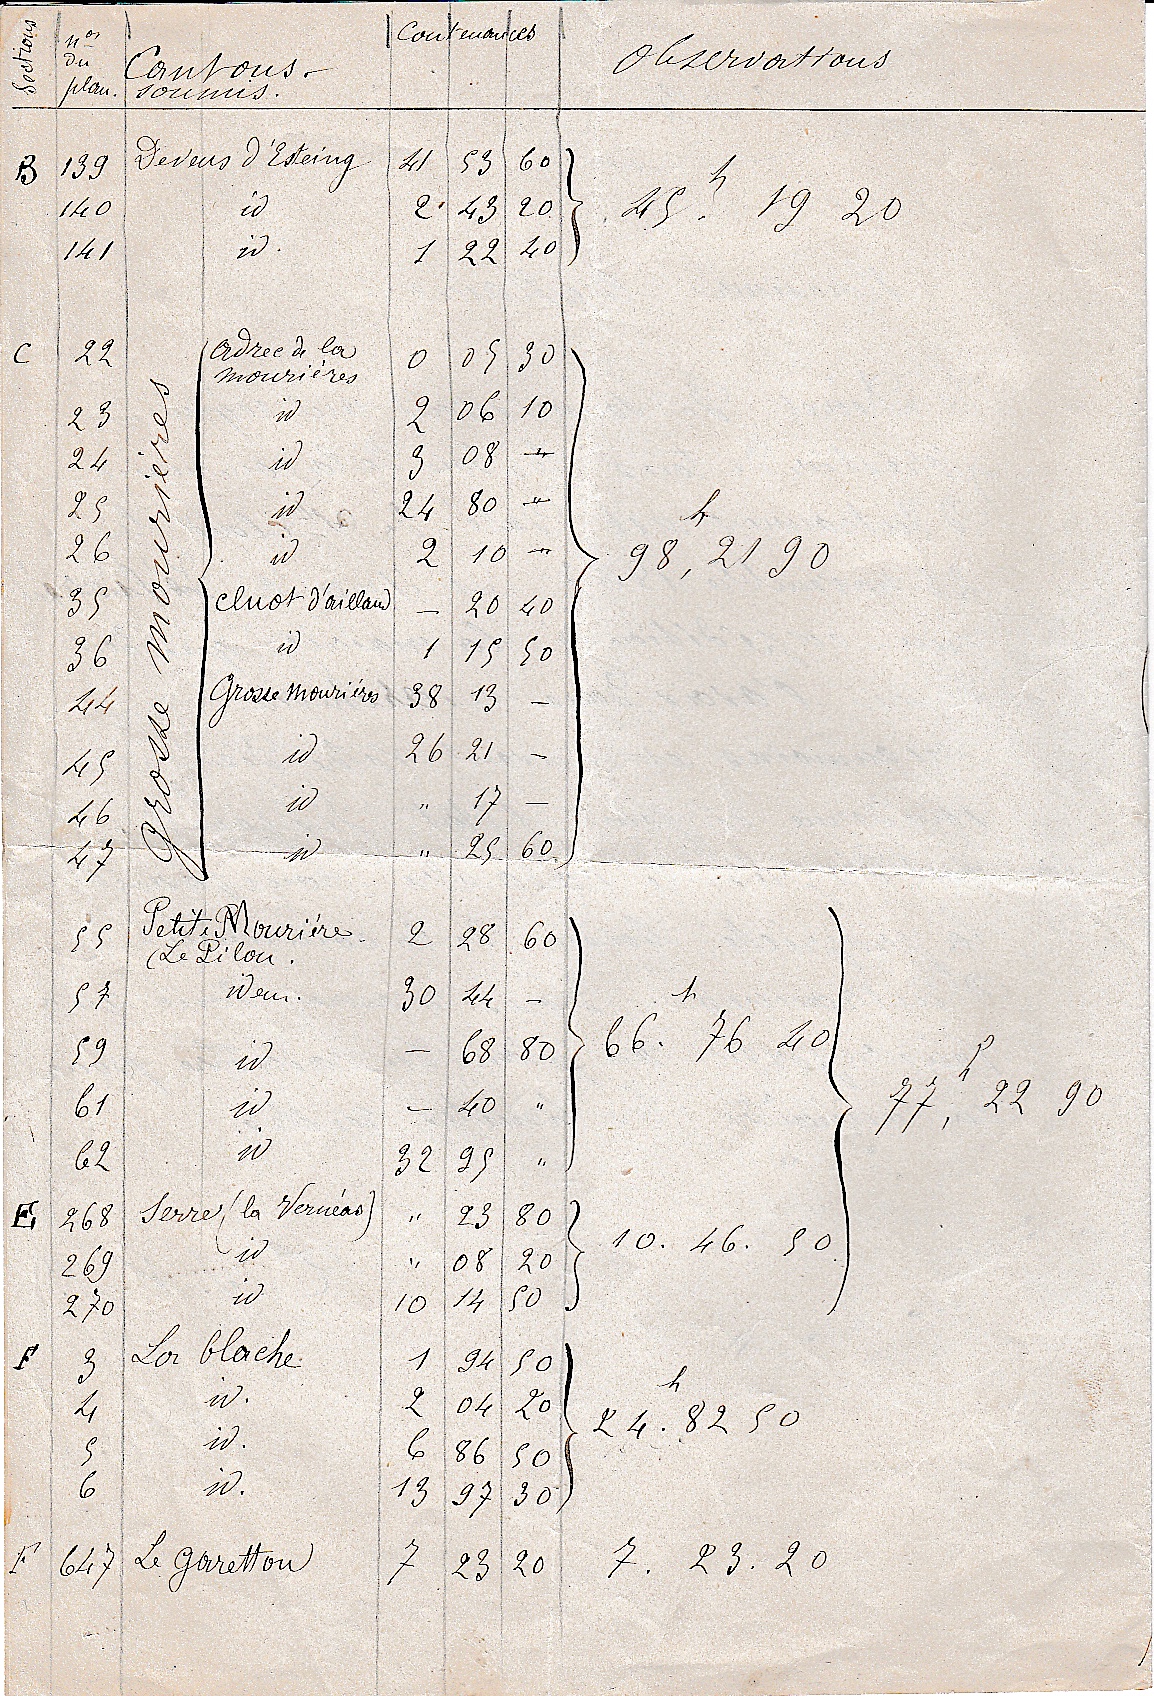 Sections nos du plan. Cantons soumis. Contenances Observations
B 139 Devens d'Esteing 41 53 60
140 id 2 43 20 45.h 19 20
141 id. 1 22 40
Grosse mourières
C 22 adrec de la mourières 0 05 30
23 id 2 06 10
24 id 3 08 "
25 id 24 80 "
26 id 2 10 " 98,h 21 90
35 Cluot d'aillaud — 20 40
36 id 1 15 50
44 Grosse Mourières 38 13 —
45 id 26 21 —
46 id " 17 —
47 id " 25 60
55 Petite Mourière (Le Pilon. 2 28 60
57 idem. 30 44 —
59 id — 68 80 66.h 76 40
61 id — 40 " 77,h 22 90
62 id 32 95 "
E 268 Serre (la Vernéas) " 23 80
269 id " 08 20 10. 46. 50
270 id 10 14 50
F 3 La blache 1 94 50
4 id. 2 04 20 24.h 82 50
5 id. 6 86 50
6 id. 13 97 30
F 647 Le garetton 7 23 20 7. 23. 20